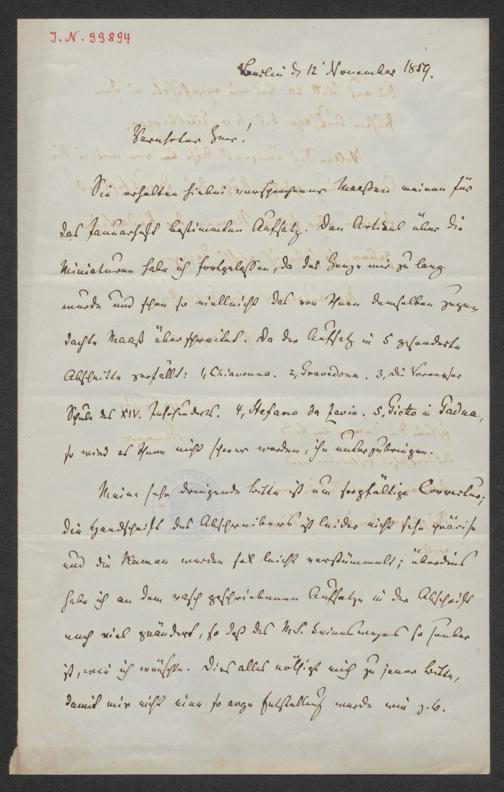 J. N. 99894
Berlin d. 12 November 1859.
Verehrter Herr!
Sie erhalten hiebei versprochener Maaßen meinen für
das Januarheft bestimmten Aufsatz. Den Artikel über die
Miniaturen habe ich fortgelassen, da das Ganze mir zu lang
wurde und schon so vielleicht das von Ihnen demselben zuge-
dachte Maaß überschreitet. Da der Aufsatz in 5 gesonderte
Abschnitte zerfällt: 1, Chiavenna. 2, Gravedona. 3, die Veroneser
Schule des XIV. Jahrhunderts. 4, Stefano da Zevio. 5, Giotto in Padua,
so wird es Ihnen nicht schwer werden, ihn unterzubringen.
Meine sehr dringende Bitte ist um sorgfältige Correctur;
die Handschrift des Abschreibers ist leider nicht sehr präcise
und die Namen werden so leicht verstümmelt; überdies
habe ich an dem rasch geschriebenen Aufsatze in der Abschrift
noch viel geändert, so daß das M.S. keineswegs so sauber
ist, wie ich wünschte. Dies alles nöthigt mich zu jener Bitte,
damit mir nicht eine so arge Entstellung werde wie z. B.